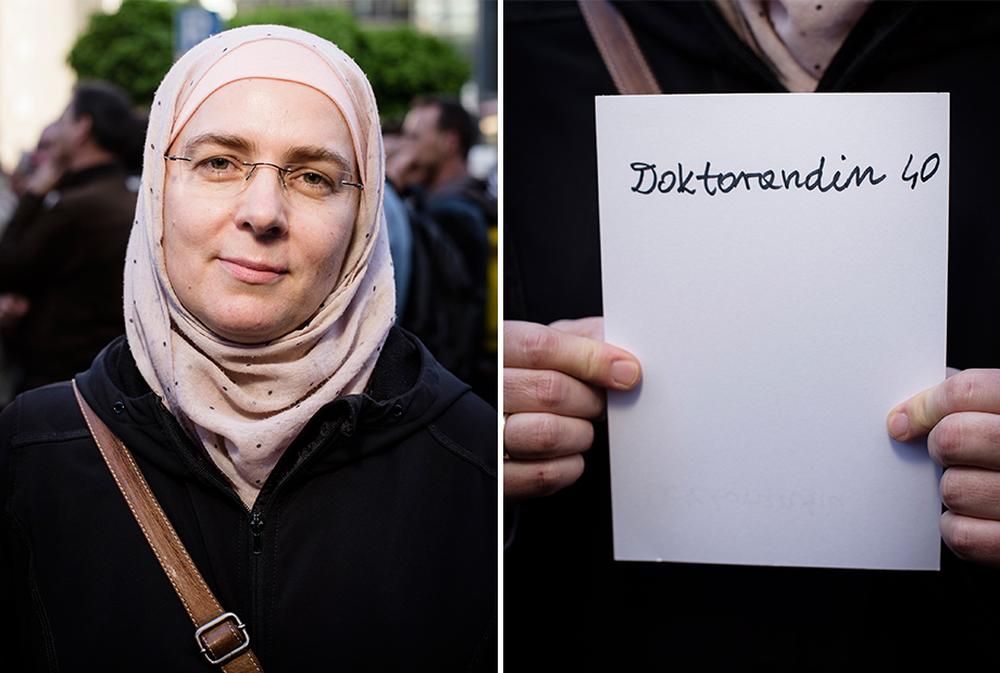 Doktorandin 40